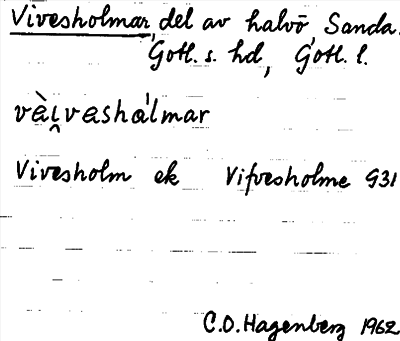 Vivesholmar, del av halvö, Sanda.
Gotl. s. hd, Gotl. l.
vèi̯vashálmar
Vivesholm ek Vifvesholme G31
C.O. Hagenberg 1962